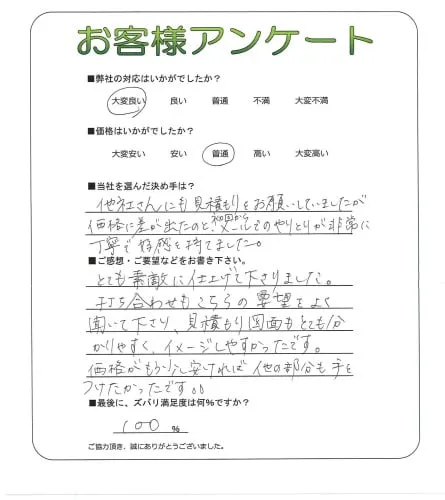 お客様アンケート
■弊社の対応はいかがでしたか？
大変良い 良い 普通 不満 大変不満
■価格はいかがでしたか？
大変安い 安い 普通 高い 大変高い
■当社を選んだ決め手は？
他社さんにも見積もりをお願いしていましたが
価格に差が出たのと、初回からメールでのやりとりが非常に
丁寧で好感を持てました。
■ご感想・ご要望などをお書き下さい。
とても素敵に仕上げて下さりました。
打ち合わせもこちらの要望をよく
聞いて下さり、見積もり図面もとても分
かりやすく、イメージしやすかったです。
価格がもう少し安ければ他の部分も手を
つけたかったです。。
■最後に、ズバリ満足度は何％ですか？
100 ％
ご協力頂き、誠にありがとうございました。